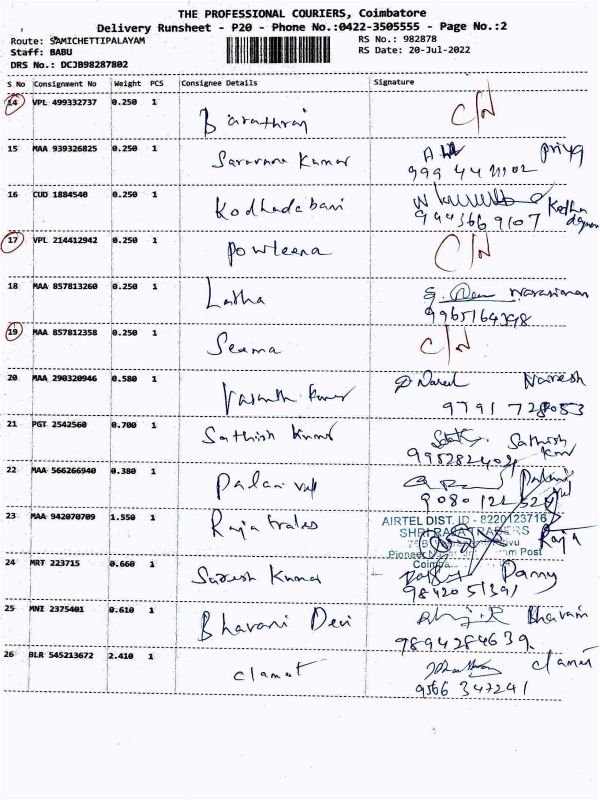 THE PROFESSIONAL COURIERS, Coimbatore
Delivery Runsheet - P20 - Phone No.:0422-3505555 - Page No.:2
Route: SAMICHETTIPALAYAM RS No.: 982878
Staff: BABU RS Date: 20-Jul-2022
DRS No.: DCJB98287802
S No Consignment No Weight PCS Consignee Details Signature
14 VPL 499332737 0.250 1 Barathraj C/N
15 MAA 939326825 0.250 1 Saravana Kumar Priya
16 CUD 1884540 0.250 1 Kodhadabani
9443669107
17 VPL 214412942 0.250 1 Powleena C/N
18 MAA 857813260 0.250 1 Latha
9965164398
19 MAA 857812358 0.250 1 Seema C/N
20 MAA 290320946 0.580 1 Vasanth Kumar Naresh
9791728053
21 PGT 2542560 0.700 1 Sathish Kumar Sathish
22 MAA 566266940 0.380 1 Palani vel Palani vel
23 MAA 942070709 1.550 1 Raja trades Raja
AIRTEL DIST. ID - 8220123716
SHRI RAJA TRADERS
24 MRT 223715 0.660 1 Suresh Kumar
9842051391
25 MNI 2375401 0.610 1 Bhavani Devi Bhavani
9894284639
26 BLR 545213672 2.410 1 Clamat Clamat
9566347241